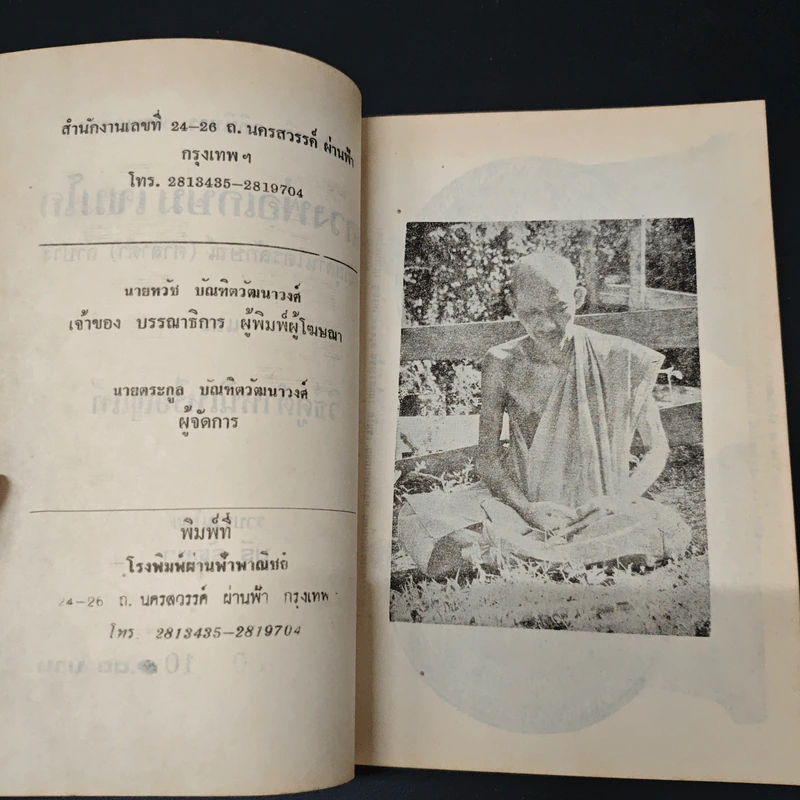 สำนักงานเลขที่ 24—26 ถ. นครสวรรค์ ผ่านฟ้า
กรุงเทพ ฯ
โทร. 2813435—2819704
นายทวัช บัณฑิตวัฒนาวงศ์
เจ้าของ บรรณาธิการ ผู้พิมพ์ผู้โฆษณา
นายตระกูล บัณฑิตวัฒนาวงศ์
ผู้จัดการ
พิมพ์ที่
โรงพิมพ์ผ่านฟ้าพาณิชย์
24—26 ถ. นครสวรรค์ ผ่านฟ้า กรุงเทพ
โทร. 2813435—2819704